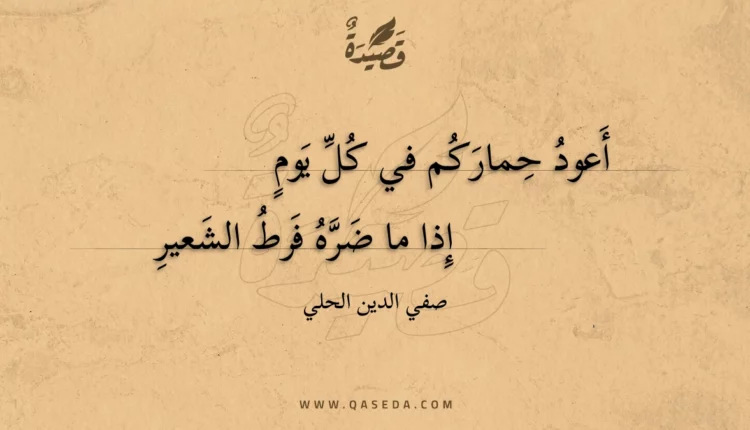 قَصِيْدَةٌ
أَعودُ حِمارَكُم في كُلِّ يَومٍ
إِذا ما ضَرَّهُ فَرطُ الشَعيرِ
صفي الدين الحلي
WWW.QASEDA.COM